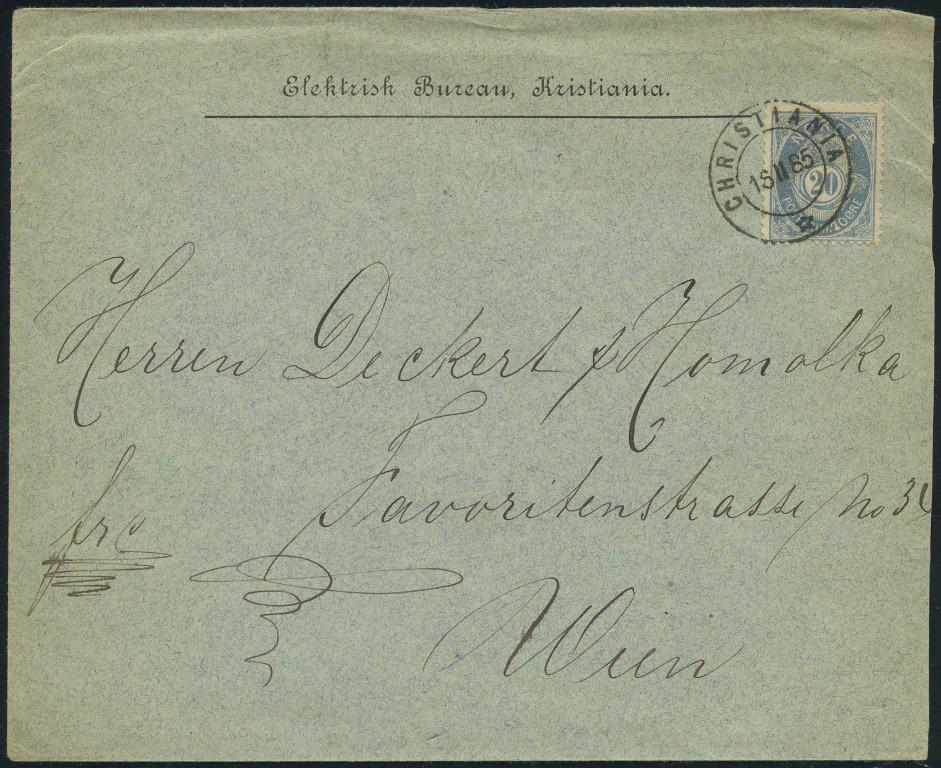 Elektrisk Bureau, Kristiania.
CHRISTIANIA
16 II 85
20
Herren Deckert & Homolka
Favoritenstrasse No 34
frc
Wien